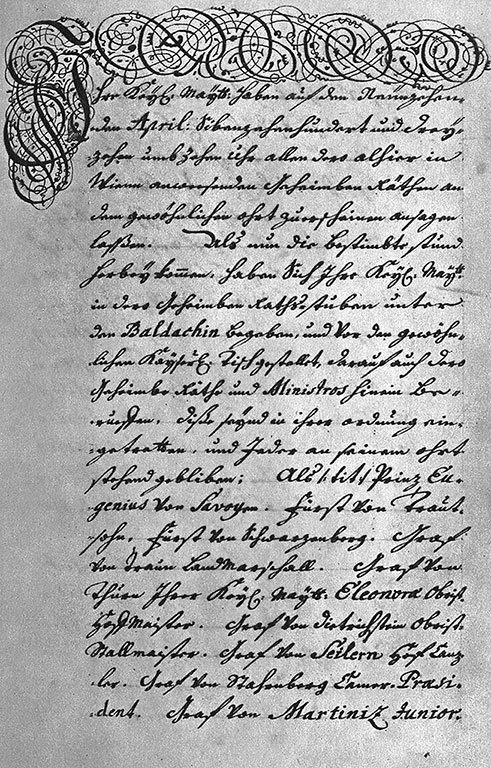 Ihre Keyl. Maytt: haben auf den Neünzehen,,
den April: Sibenzehenhundert und drey,,
zehen umb zehen uhr allen dero alhier in
Wienn anwesenden Geheimben Räthen an
dem gewöhnlichen ohrt zuerscheinen ansagen
lassen. Als nun die bestimbte stund
herbey kommen, haben Sich Ihre Keyl. Maytt:
in dero Geheimben Raths-stuben unter
den Baldachin begeben, und vor den gewöhn,,
lichen Kayserl. Tisch gestellet, darauf auch dero
Geheimbe Räthe und Ministros hinein Be,,
rueffen, diße seynd in ihrer ordnung ein,,
getretten, und Jeder an seinem ohrt
stehend gebliben; Als /: tit: / Prinz Eu,,
genius von Savoyen. Fürst von Traut,,
sohn. Fürst von Schwarzenberg. Graf
von Traun LandMarschall. Graf von
Thurn Ihrer Keyl. Maytt: Eleonoræ Obrist
HoffMaister. Graf von Dietrichstein Obrist-
Stallmaister. Graf von Seilern Hof Canz
ler. Graf von Stahrenberg Camer-Præsi,,
dent. Graf von Martiniz Junior.